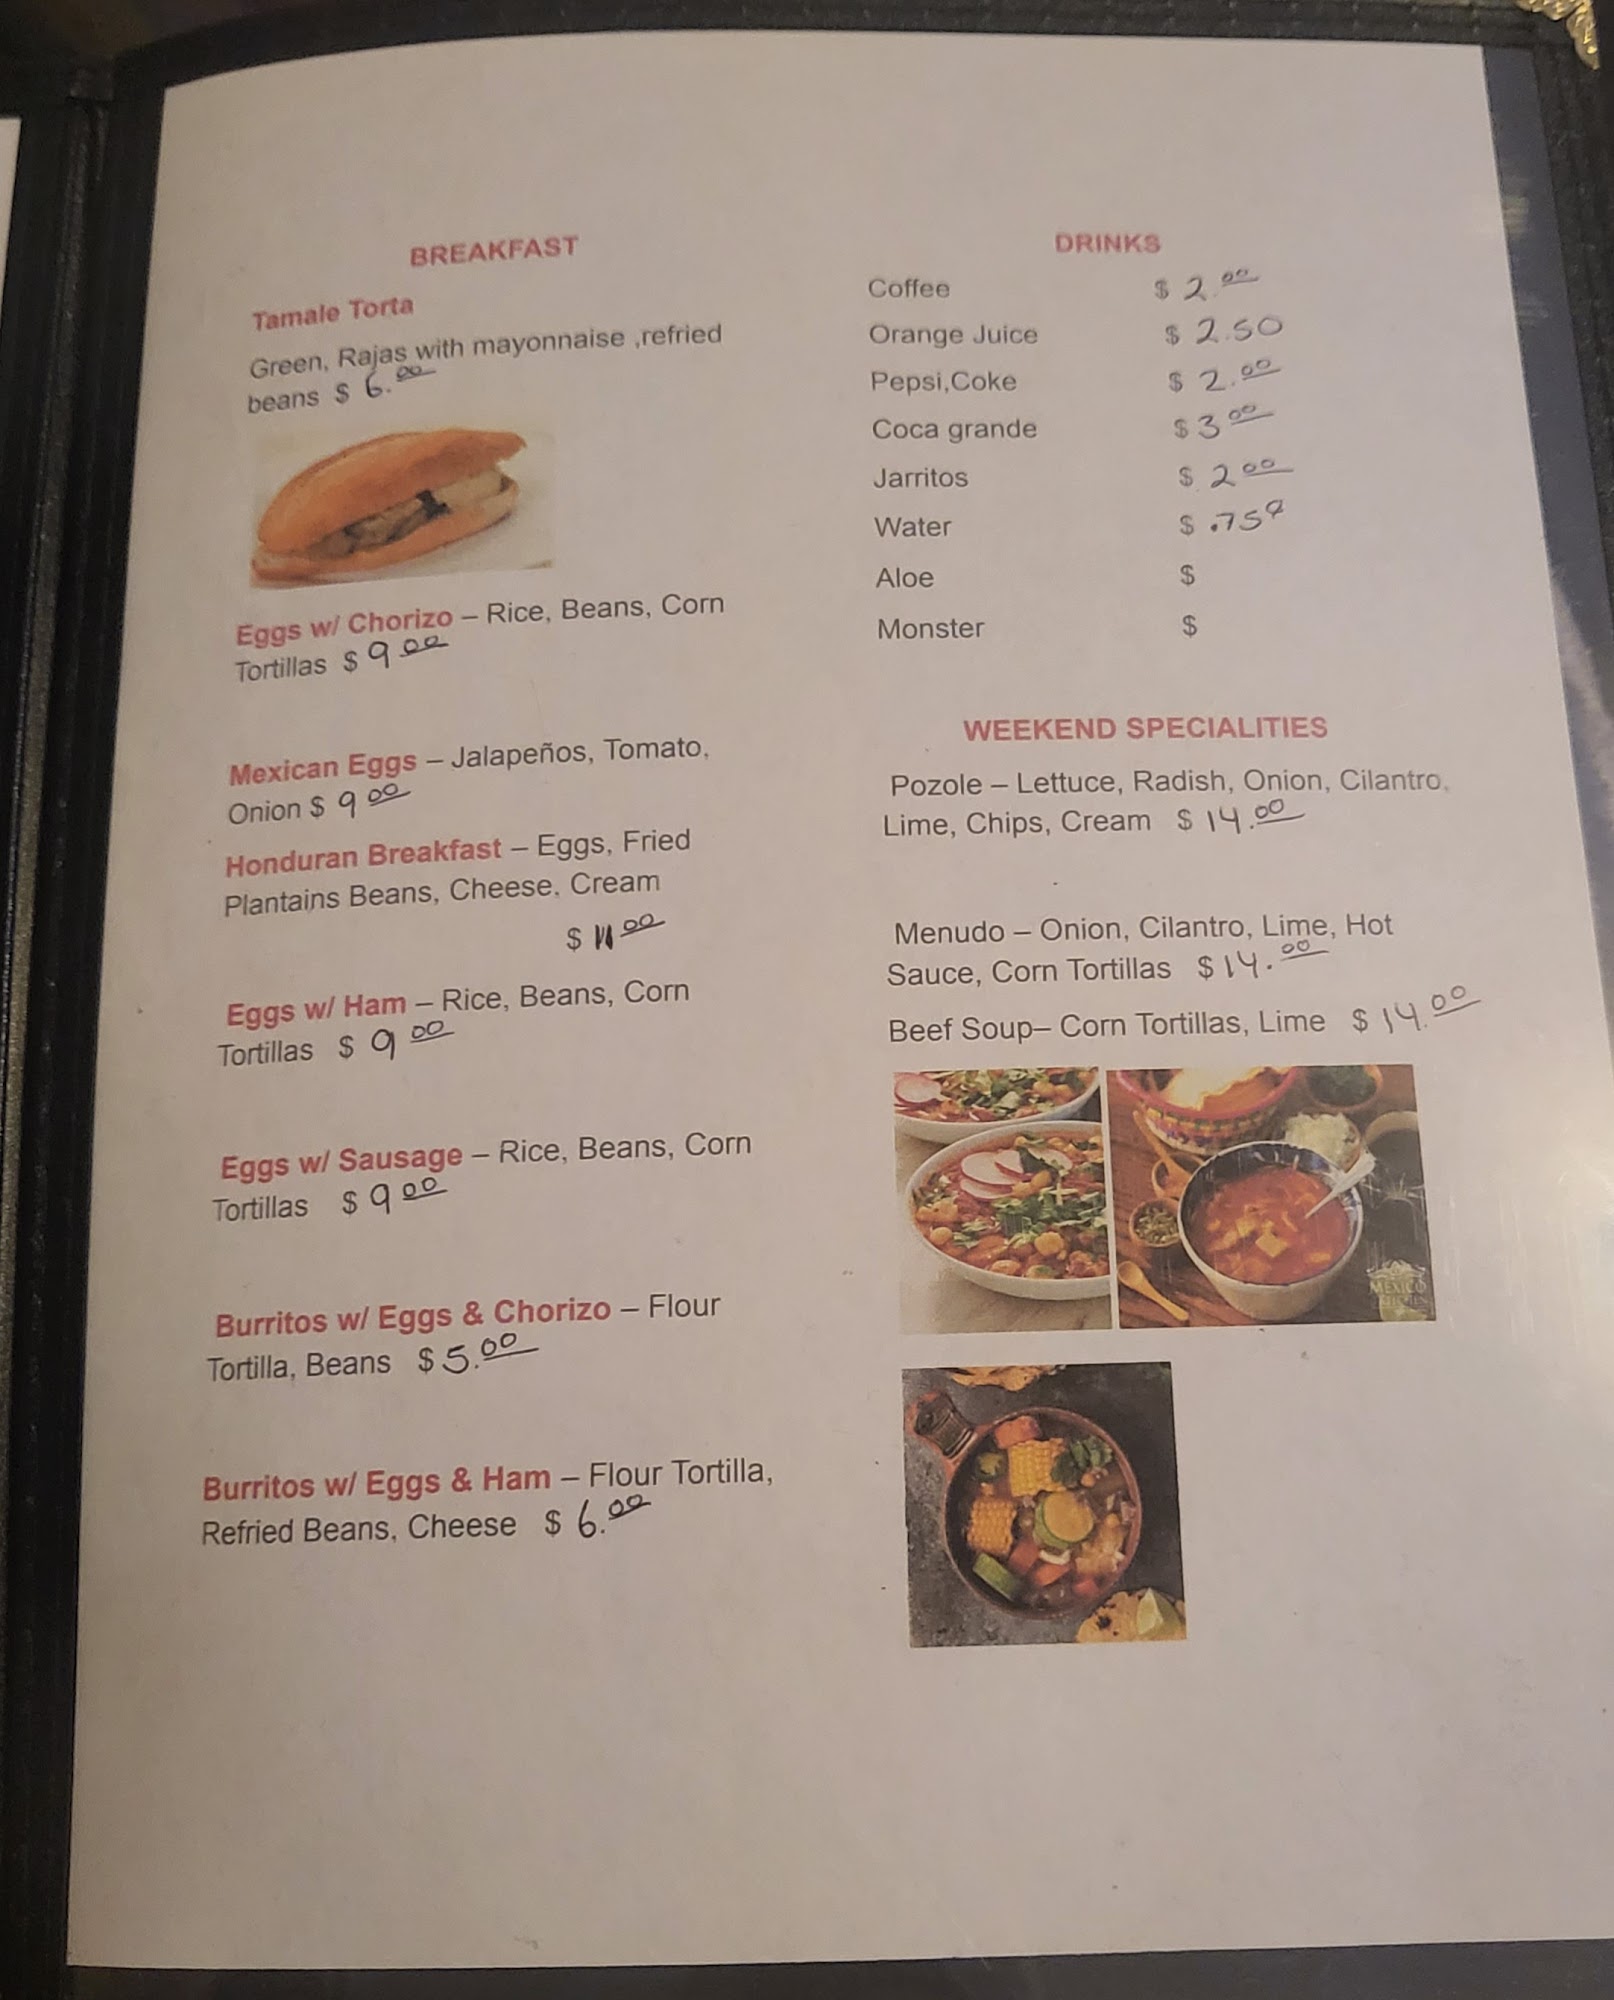 BREAKFAST
Tamale Torta
Green, Rajas with mayonnaise ,refried
beans $ 6.00
Eggs w/ Chorizo – Rice, Beans, Corn
Tortillas $ 9 00
Mexican Eggs – Jalapeños, Tomato,
Onion $ 9 00
Honduran Breakfast – Eggs, Fried
Plantains Beans, Cheese, Cream
$ 11 00
Eggs w/ Ham – Rice, Beans, Corn
Tortillas $ 9 00
Eggs w/ Sausage – Rice, Beans, Corn
Tortillas $ 9 00
Burritos w/ Eggs & Chorizo – Flour
Tortilla, Beans $ 5.00
Burritos w/ Eggs & Ham – Flour Tortilla,
Refried Beans, Cheese $ 6.00
DRINKS
Coffee $ 2.00
Orange Juice $ 2.50
Pepsi,Coke $ 2.00
Coca grande $ 3 00
Jarritos $ 2 00
Water $ .75¢
Aloe $
Monster $
WEEKEND SPECIALITIES
Pozole – Lettuce, Radish, Onion, Cilantro,
Lime, Chips, Cream $ 14.00
Menudo – Onion, Cilantro, Lime, Hot
Sauce, Corn Tortillas $ 14.00
Beef Soup– Corn Tortillas, Lime $ 14.00
MEXICO
KITCHEN